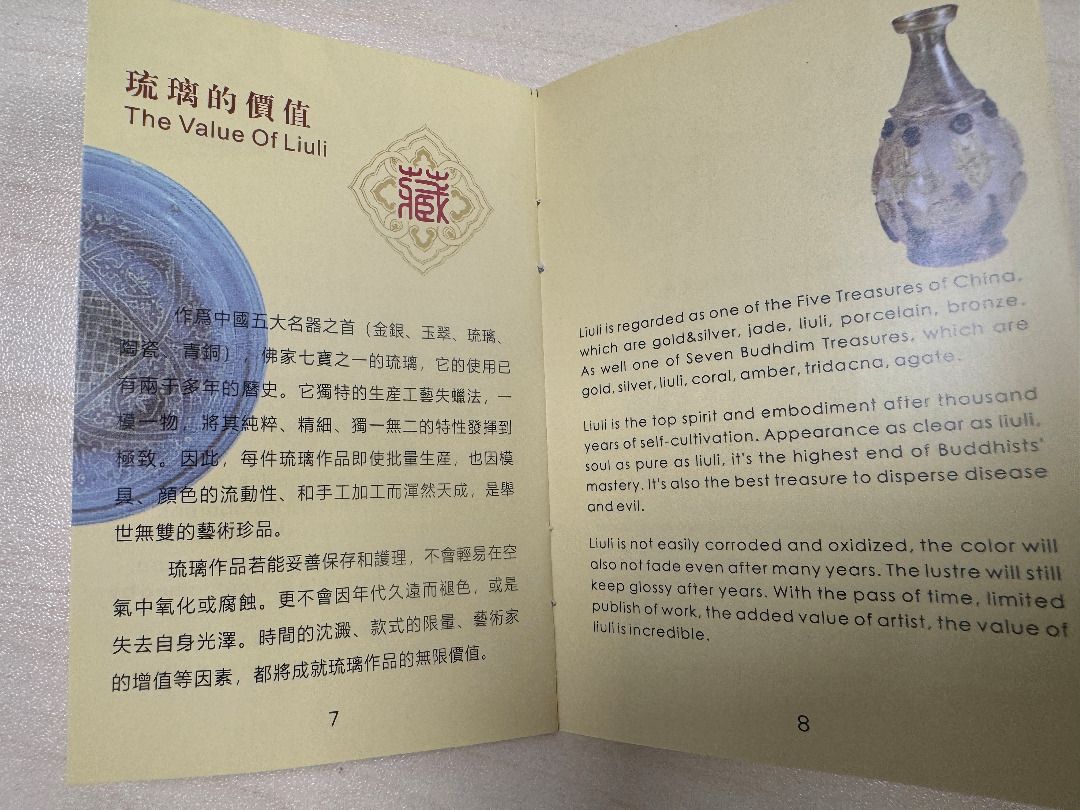 琉璃的價值
The Value Of Liuli
藏
作爲中國五大名器之首（金銀、玉翠、琉璃、
陶瓷、青銅），佛家七寶之一的琉璃，它的使用已
有兩于多年的曆史。它獨特的生産工藝失蠟法，一
模一物，將其純粹、精細、獨一無二的特性發揮到
極致。因此，每件琉璃作品即使批量生産，也因模
具、顔色的流動性、和手工加工而渾然天成，是舉
世無雙的藝術珍品。
琉璃作品若能妥善保存和護理，不會輕易在空
氣中氧化或腐蝕。更不會因年代久遠而褪色，或是
失去自身光澤。時間的沈澱、款式的限量、藝術家
的增值等因素，都將成就琉璃作品的無限價值。
7
Liuli is regarded as one of the Five Treasures of China,
which are gold&silver, jade, liuli, porcelain, bronze.
As well one of Seven Budhdim Treasures, which are
gold, silver, liuli, coral, amber, tridacna, agate.
Liuli is the top spirit and embodiment after thousand
years of self-cultivation. Appearance as clear as liuli,
soul as pure as liuli, it's the highest end of Buddhists'
mastery. It's also the best treasure to disperse disease
and evil.
Liuli is not easily corroded and oxidized, the color will
also not fade even after many years. The lustre will still
keep glossy after years. With the pass of time, limited
publish of work, the added value of artist, the value of
liuli is incredible.
8